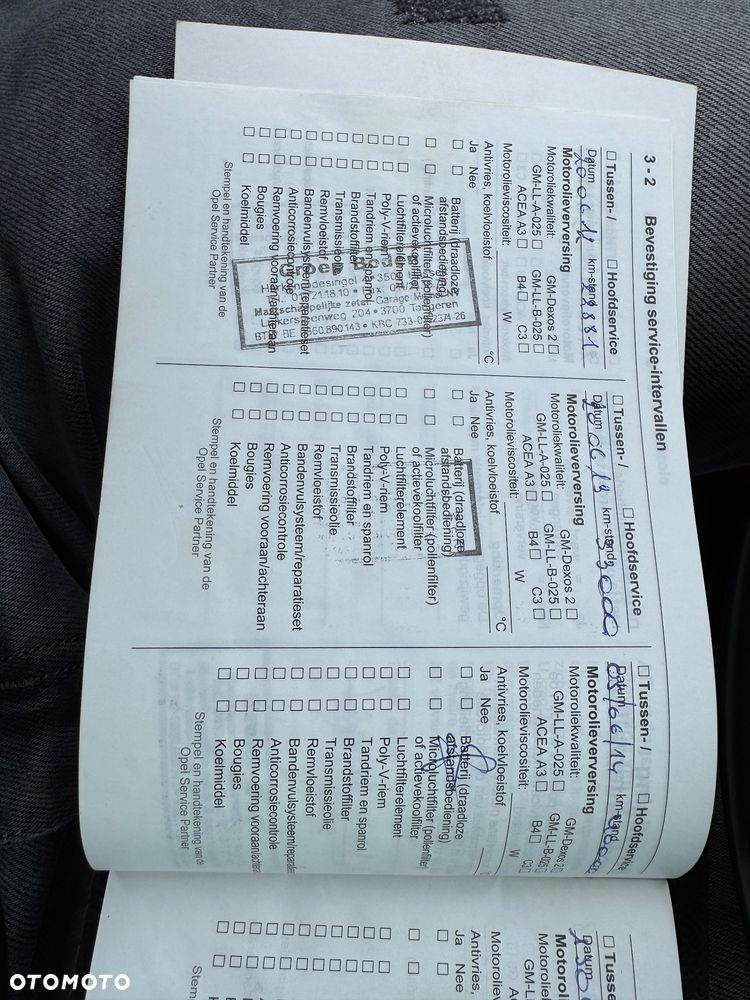 3 - 2 Bevestiging service-intervallen
☐ Tussen- / ☐ Hoofdservice
Datum km-stand
Motorolieverversing
Motoroliekwaliteit: GM-Dexos 2 ☐
☐ GM-LL-A-025 ☐ GM-LL-B-025 ☐
ACEA A3 ☐ B4 ☐ C3 ☐
Motorolieviscositeit: W
Antivries, koelvloeistof °C
Ja Nee
☐ ☐ Batterij (draadloze
afstandsbediening)
☐ ☐ Microluchtfilter (pollenfilter)
of actievekoolfilter
☐ ☐ Luchtfilterelement
☐ ☐ Poly-V-riem
☐ ☐ Tandriem en spanrol
☐ ☐ Brandstoffilter
☐ ☐ Transmissieolie
☐ ☐ Remvloeistof
☐ ☐ Bandenvulsysteem/reparatieset
☐ ☐ Anticorrosiecontrole
☐ ☐ Remvoering vooraan/achteraan
☐ ☐ Bougies
☐ ☐ Koelmiddel
Maatschappelijke zetel: Garage
204 • 3700 Tongeren
Stempel en handtekening van de
Opel Service Partner
☐ Tussen- / ☐ Hoofdservice
Datum km-stand
Motorolieverversing
Motoroliekwaliteit: GM-Dexos 2 ☐
GM-LL-A-025 ☐ GM-LL-B-025 ☐
ACEA A3 ☐ B4 ☐ C3 ☐
Motorolieviscositeit: W
Antivries, koelvloeistof °C
Ja Nee
☐ ☐ Batterij (draadloze
afstandsbediening)
☐ ☐ Microluchtfilter (pollenfilter)
of actievekoolfilter
☐ ☐ Luchtfilterelement
☐ ☐ Poly-V-riem
☐ ☐ Tandriem en spanrol
☐ ☐ Brandstoffilter
☐ ☐ Transmissieolie
☐ ☐ Remvloeistof
☐ ☐ Bandenvulsysteem/reparatieset
☐ ☐ Anticorrosiecontrole
☐ ☐ Remvoering vooraan/achteraan
☐ ☐ Bougies
☐ ☐ Koelmiddel
Stempel en handtekening van de
Opel Service Partner
☐ Tussen- / ☐ Hoofdservice
Datum 05/06/14 km-stand
Motorolieverversing
Motoroliekwaliteit: GM-Dexos 2 ☐
GM-LL-A-025 ☐ GM-LL-B-025
ACEA A3 ☐ B4 ☐ C3 ☐
Motorolieviscositeit: W
Antivries, koelvloeistof
Ja Nee
☐ ☐ Batterij (draadloze
afstandsbediening)
☐ ☐ Microluchtfilter (pollenfilter)
of actievekoolfilter
☐ ☐ Luchtfilterelement
☐ ☐ Poly-V-riem
☐ ☐ Tandriem en spanrol
☐ ☐ Brandstoffilter
☐ ☐ Transmissieolie
☐ ☐ Remvloeistof
☐ ☐ Bandenvulsysteem/reparatie
☐ ☐ Anticorrosiecontrole
☐ ☐ Remvoering vooraan/achter
☐ ☐ Bougies
☐ ☐ Koelmiddel
Stempel en handtekening van de
Opel Service Partner
☐ Tuss
Datum
Moto
Motorol
GM-L
AC
Motorol
Antivries,
Ja Nee
Stem
OTOMOTO